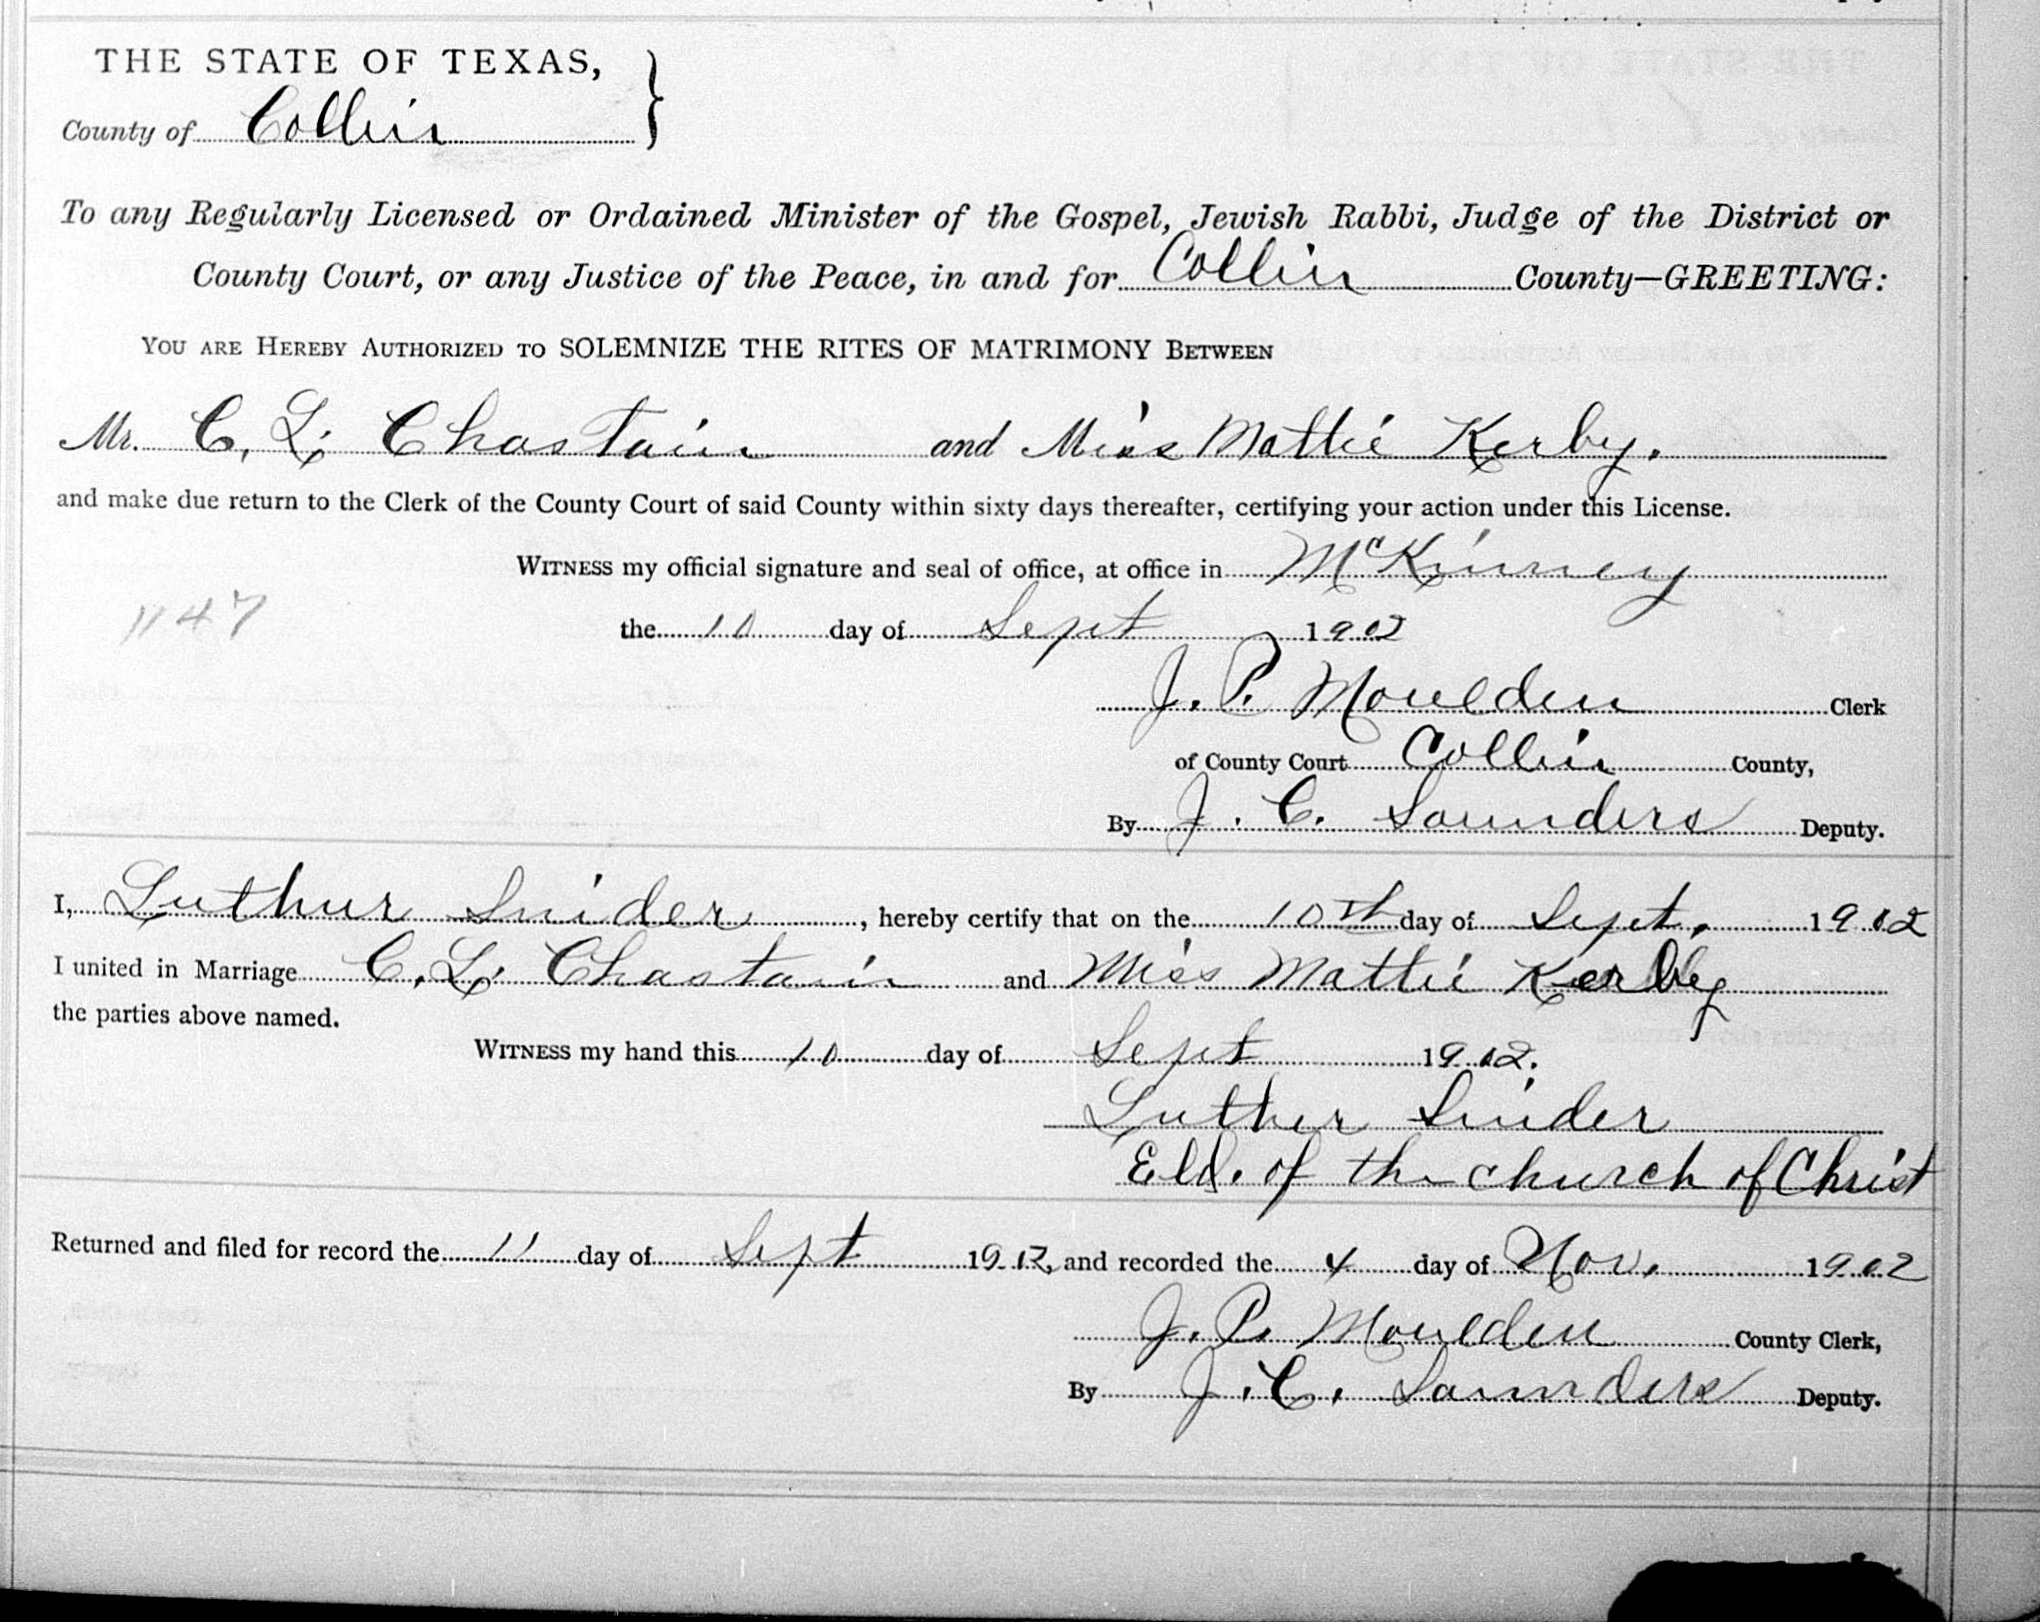 THE STATE OF TEXAS,
County of Collin
To any Regularly Licensed or Ordained Minister of the Gospel, Jewish Rabbi, Judge of the District or
County Court, or any Justice of the Peace, in and for Collin County—GREETING:
YOU ARE HEREBY AUTHORIZED TO SOLEMNIZE THE RITES OF MATRIMONY BETWEEN
Mr. C. L. Chastain and Miss Mattie Kerby.
and make due return to the Clerk of the County Court of said County within sixty days thereafter, certifying your action under this License.
WITNESS my official signature and seal of office, at office in McKinney
1147
the 10 day of Sept 1902
J. P. Moulden Clerk
of County Court Collin County,
By J. C. Saunders Deputy.
I, Luthur Snider, hereby certify that on the 10th day of Sept. 1902
I united in Marriage C. L. Chastain and Miss Mattie Kerby
the parties above named.
WITNESS my hand this 10 day of Sept 1902.
Luther Snider
Eld. of the church of Christ
Returned and filed for record the 11 day of Sept 1902, and recorded the 4 day of Nov. 1902
J. P. Moulden County Clerk,
By J. C. Saunders Deputy.